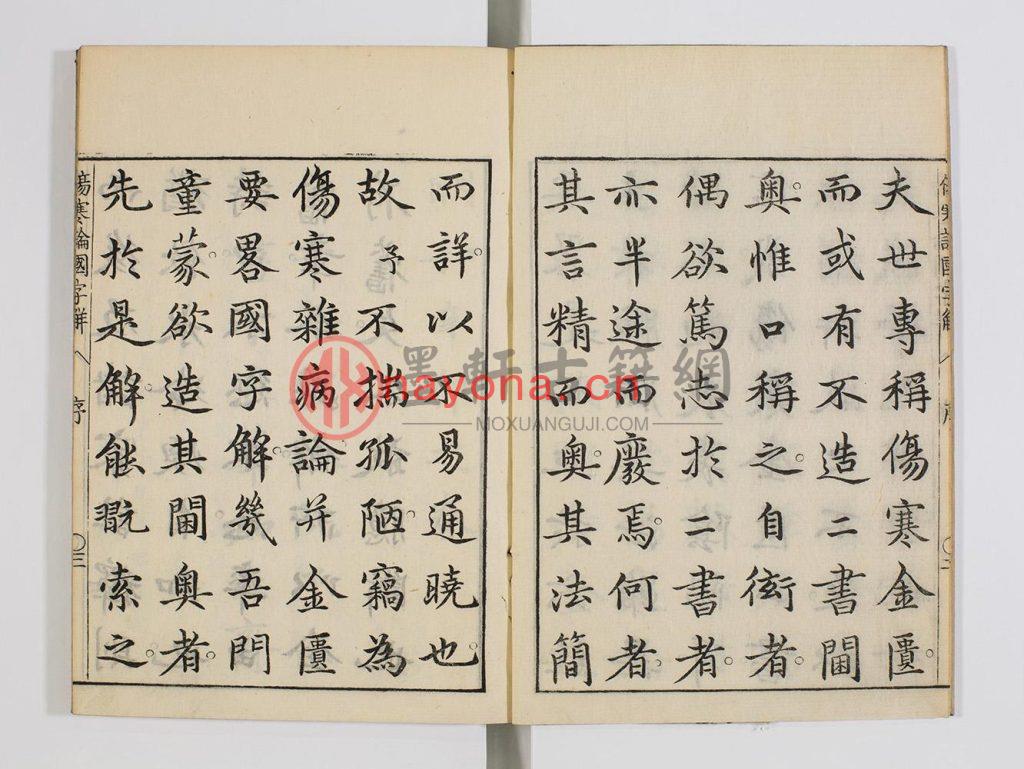 夫世專稱傷寒金匱。
而或有不造二書閫
奥。惟口稱之。自衒者。
偶欲篤志於二書者。
亦半途而廢焉。何者。
其言精而奥。其法簡
而詳。以不易通曉也。
故予不揣孤陋。竊為
傷寒雜病論并金匱
要畧國字解。幾吾門
童蒙欲造其閫。奥者。
先於是解。能翫索之。
傷寒論國字解
序
〇三
墨軒古籍網
nayona.cn
MOXUANGUJI.COM